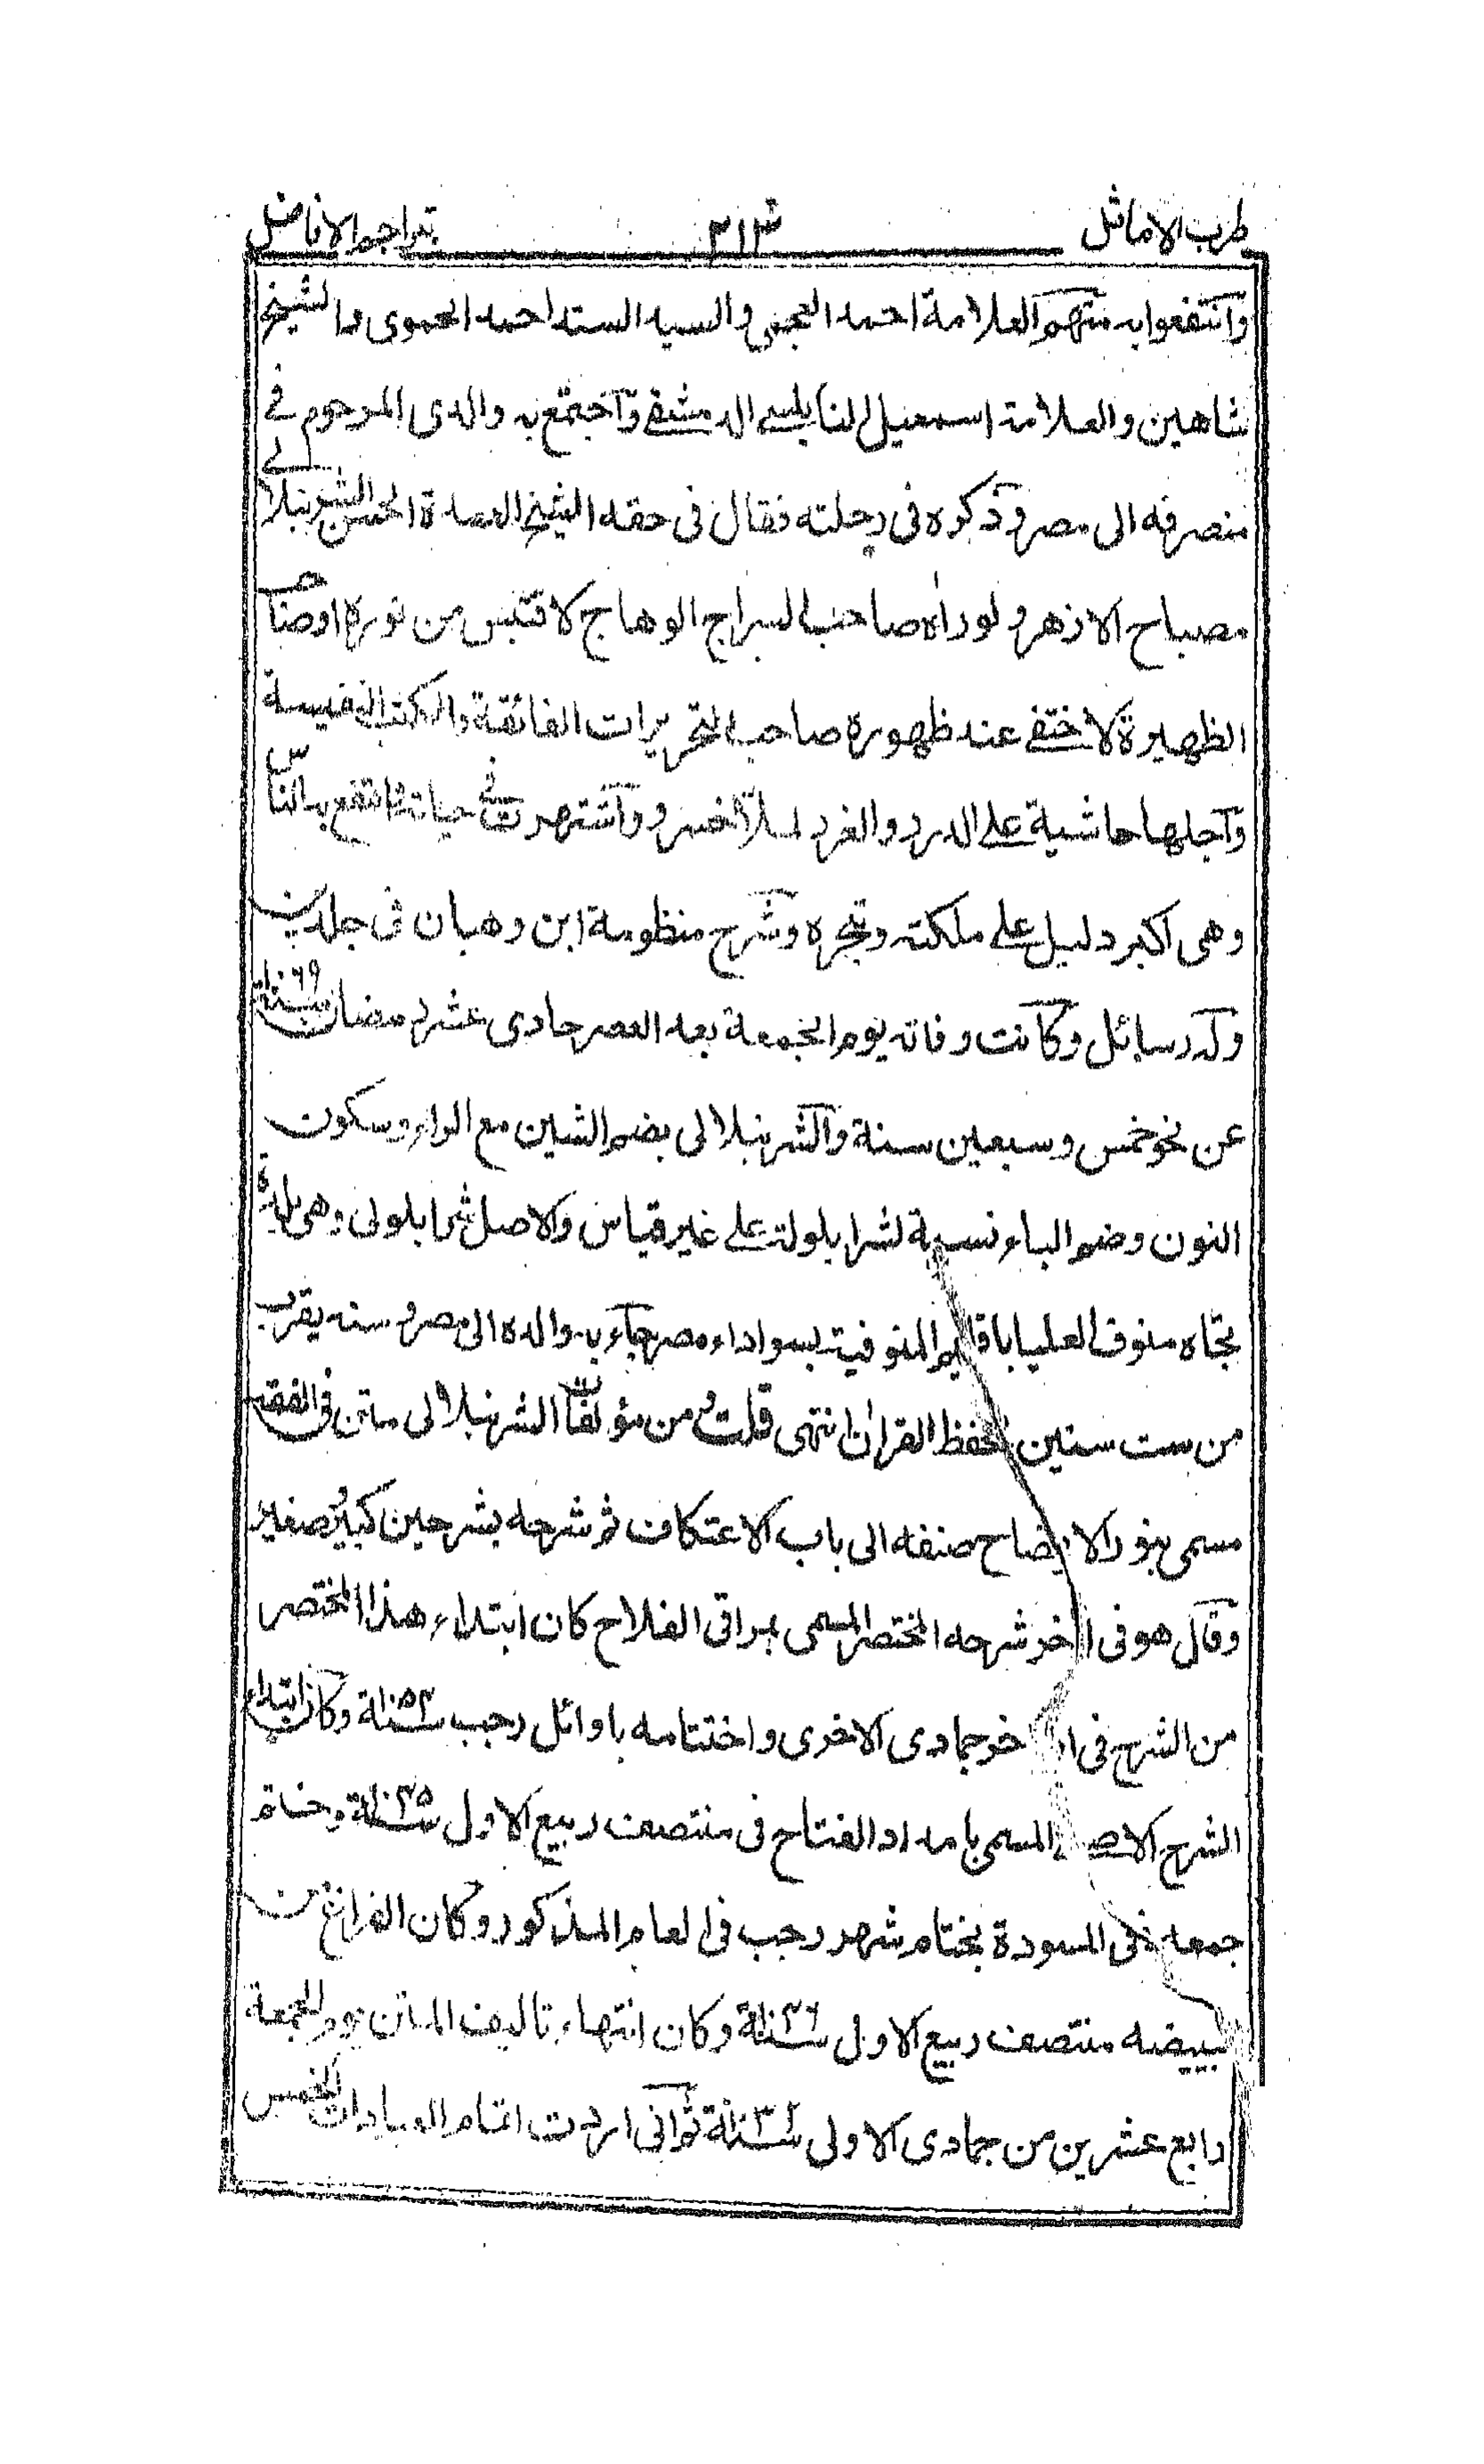 طرب الاماثل ٣١٣ بتراجم الافاضل
وانتفعوا به منهم العلامة احمد العجمى والسيد السند احمد الحموى والشيخ
شاهين والعلامة اسمعيل النابلسى الدمشقى واجتمع به والدى المرحوم فى
منصرفه الى مصر وذكره فى رحلته فقال فى حقه الشيخ العمدة الحسن الشرنبلالى
مصباح الازهر ولو راٰه صاحب السراج الوهاج لاقتبس من نوره اوصاحب
الظهيرة لاختفى عند ظهوره صاحب التحريرات الفائقة والكتب النفيسة
واجلها حاشية على الدرر والغرر لملا خسرو واشتهرت فى حياته وانتفع بها الناس
وهى اكبر دليل على ملكته وتبحره وشرح منظومة ابن وهبان فى جلدين
وله رسائل وكانت وفاته يوم الجمعة بعد العصر حادى عشر رمضان سنة ١٠٦٩
عن نحو خمس وسبعين سنة والشرنبلالى بضم الشين مع الراء وسكون
النون وضم الباء نسبة لشرابلولة على غير قياس والاصل شرابلولى وهى بلدة
تجاه منوف العليا باقليم المنوفية بسواداء مصر جاء به والده الى مصر وسنه يقرب
من ست سنين فحفظ القراٰن انتهى قلت ومن مؤلفات الشرنبلالى متن فى الفقه
مسمى بنور الايضاح صنفه الى باب الاعتكاف ثم شرحه بشرحين كبير وصغير
وقال هو فى اٰخر شرحه المختصر المسمى بمراقى الفلاح كان ابتداء هذا المختصر
من الشرح فى اواخر جمادى الاخرى واختتامه باوائل رجب سنة ١٠٥٤ وكان ابتداء
الشرح الاصلى المسمى بامداد الفتاح فى منتصف ربيع الاول سنة ١٠٤٥ وختم
جمعه فى المسودة بختام شهر رجب فى العام المذكور وكان الفراغ من
تبييضه منتصف ربيع الاول سنة ١٠٤٦ وكان انتهاء تاليف المتن يوم الجمعة
رابع عشرين من جمادى الاولى سنة ١٠٣٢ ثم انى اردت اتمام العبادات الخمس